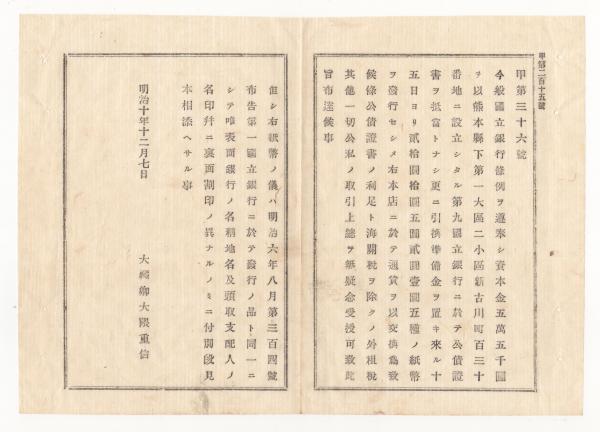 甲第二百十五號
甲第三十六號
今般國立銀行條例ヲ遵奉シ資本金五萬五千圓
ヲ以熊本縣下第一大區二小區新古川町百三十
番地ニ設立シタル第九國立銀行ニ於テ公債證
書ヲ抵當トナシ更ニ引換準備金ヲ置キ來ル十
五日ヨリ貳拾圓拾圓五圓貳圓壹圓五種ノ紙幣
ヲ發行セシメ右本店ニ於テ通貨ヲ以交換爲致
候條公債證書ノ利足ト海關稅ヲ除クノ外租稅
其他一切公私ノ取引上總テ無疑念受授可致此
旨布達候事
但シ右紙幣ノ儀ハ明治六年八月第三百四號
布告第一國立銀行ニ於テ發行ノ品ト同一ニ
シテ唯表面銀行ノ名稱地名及頭取支配人ノ
名印幷ニ裏面割印ノ異ナルノミニ付別段見
本相添ヘサル事
明治十年十二月七日
大藏卿大隈重信